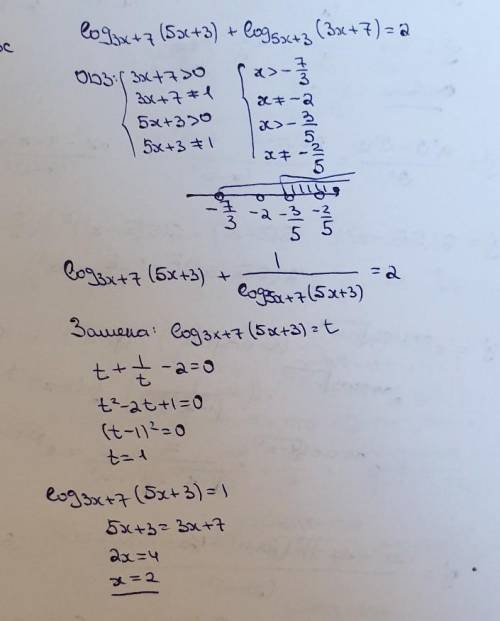 log₃ₓ₊₇(5x+3) + log₅ₓ₊₃(3x+7) = 2
ОДЗ: { 3x+7>0 { x>-7/3
3x+7≠1 x≠-2
5x+3>0 x>-3/5
5x+3≠1 x≠-2/5
-7/3 -2 -3/5 -2/5
log₃ₓ₊₇(5x+3) + 1/log₃ₓ₊₇(5x+3) = 2
Замена: log₃ₓ₊₇(5x+3)=t
t+1/t-2=0
t²-2t+1=0
(t-1)²=0
t=1
log₃ₓ₊₇(5x+3)=1
5x+3=3x+7
2x=4
x=2